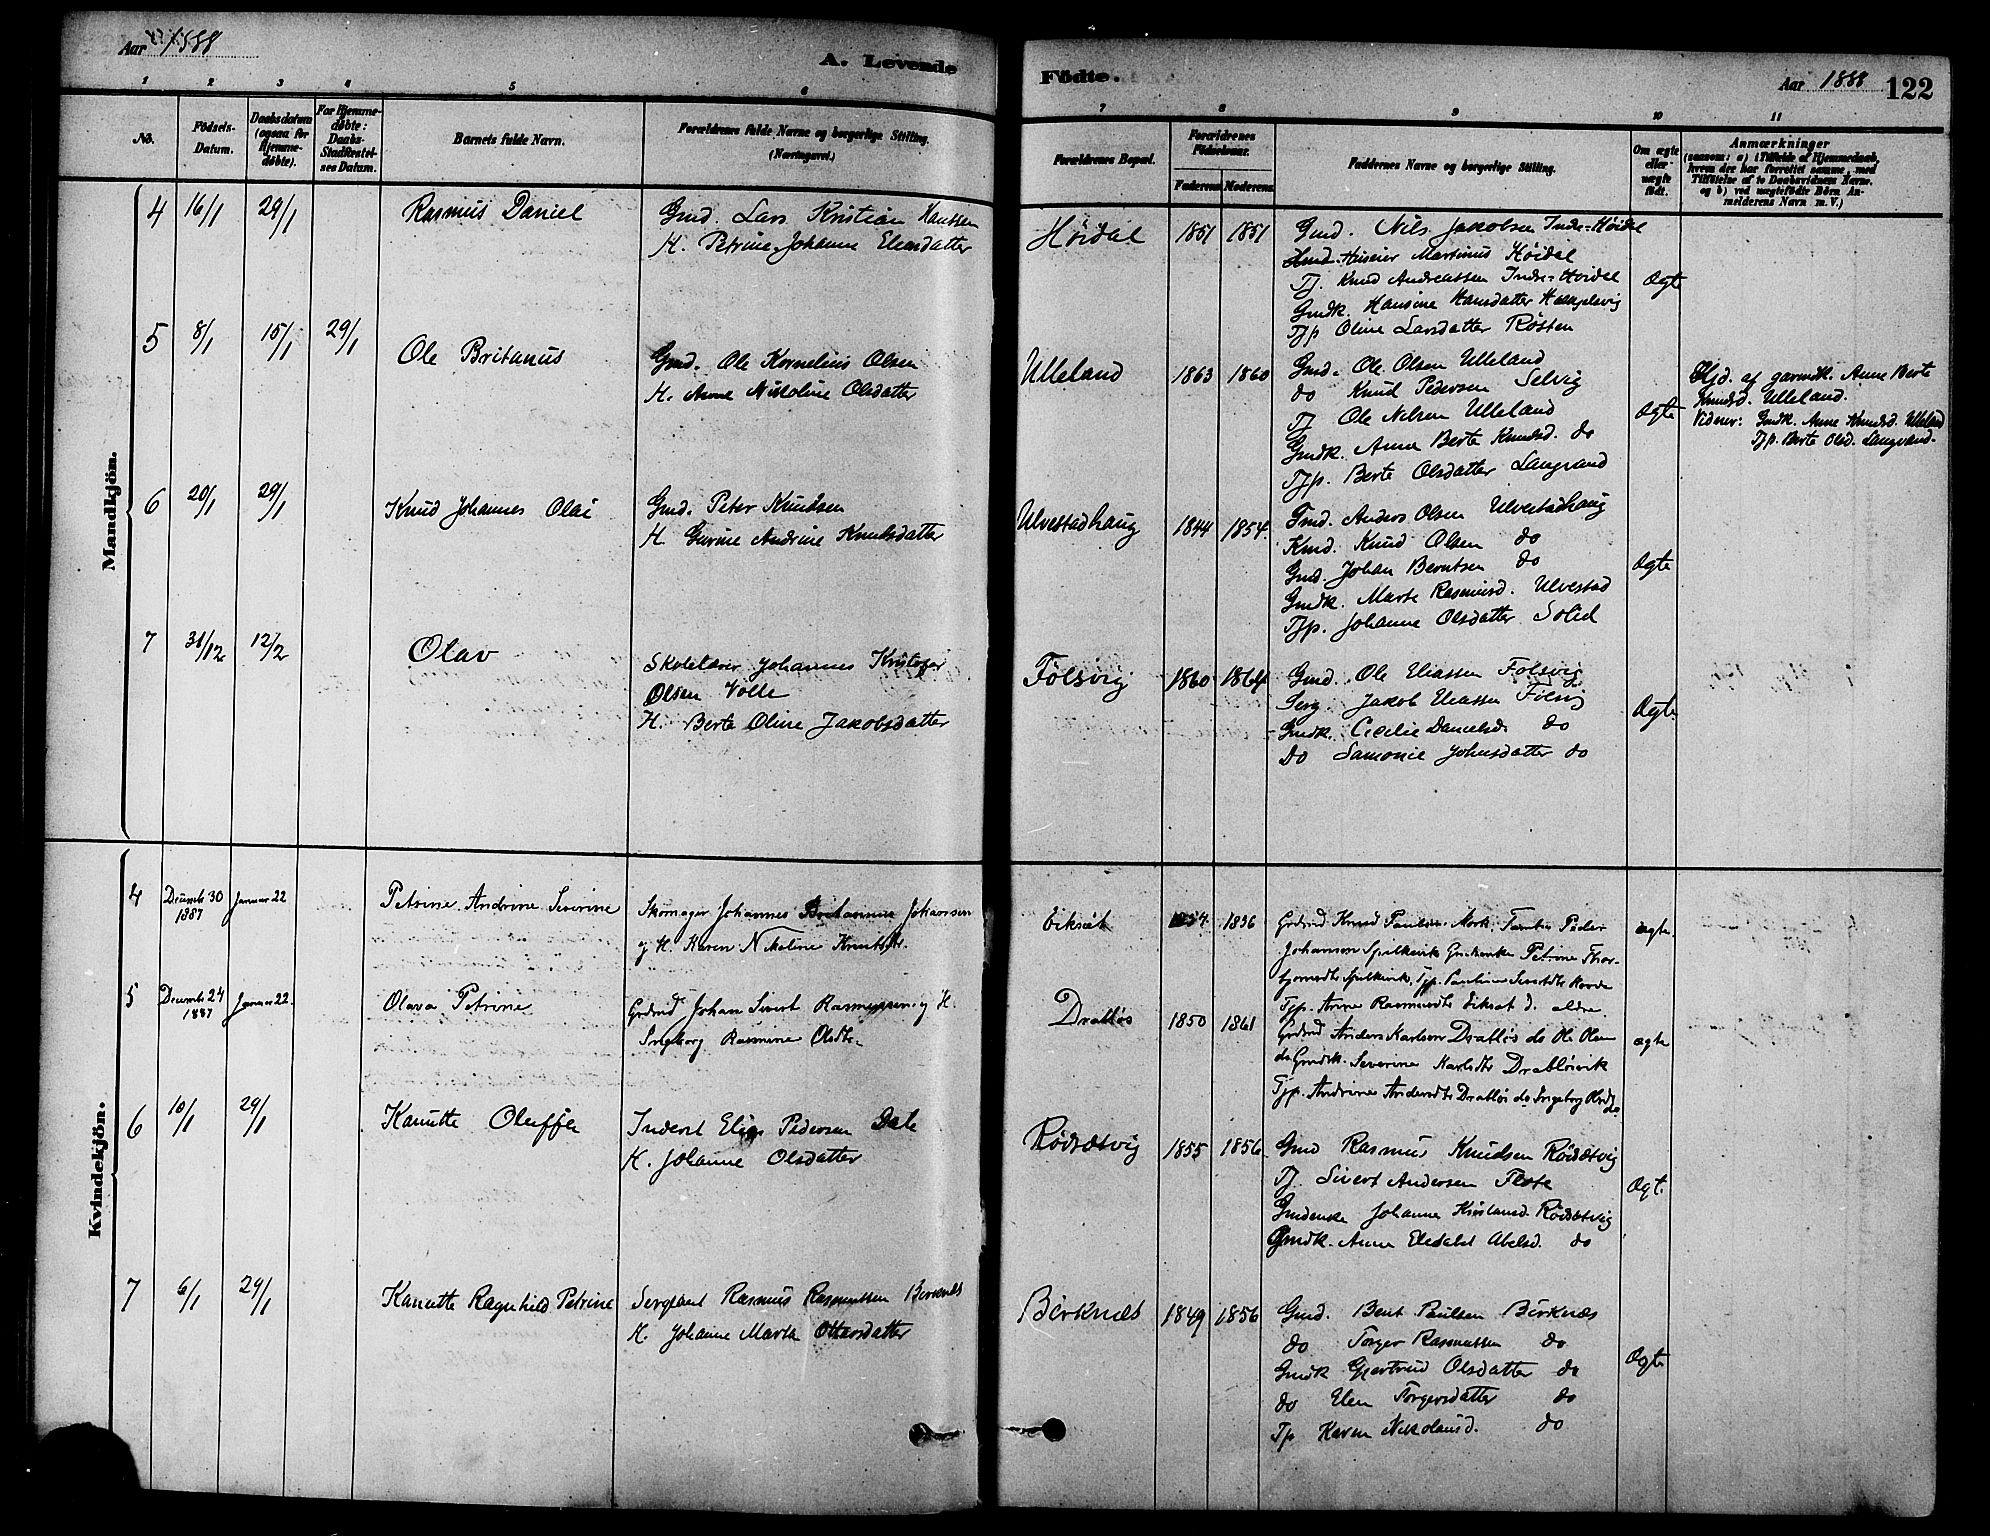 Aar 1888
A. Levende
1 2 3 4 5 6
No.
Födsels-
Datum.
Daabsdatum
(ogsaa for
Hjemme-
døbte).
For Hjemme-
døbte:
Daabs-
Stadfæstel-
ses Datum.
Barnets fulde Navn.
Forældrenes fulde Navne og borgerlige Stilling.
(Næringsvei.)
Mandkjön.
4 16/1 29/1 Rasmus Daniel Gmd. Lars Kristian Hanssen
H. Petrine Johanne Eliasdatter
5 8/1 15/1 29/1 Ole Britanus Gmd. Ole Kornelius Olsen
H. Anne Nikoline Olsdatter
6 20/1 29/1 Knud Johannes Olai Gmd. Peter Knudsen
H. Gurine Andrine Knudsdatter
7 31/12 12/2 Olav Skolelærer Johannes Kristofer
Olsen Volle
H. Berte Oline Jakobsdatter
Kvindekjön.
4 Decemb 30 1887 Januar 22 Petrine Andrine Severine Skomager Johannes Britannus Johansen
og H. Karen Nikoline Knutsdtr.
5 Decemb 24 1887 Januar 22. Olava Petrine Grdmd Johan Sivert Rasmussen og H.
Ingeborg Rasmine Olsdtr.
6 10/1 29/1 Kanutte Oluffa Inderst Elias Pedersen Dale
H. Johanne Olsdatter
7 6/1 29/1 Kanutte Ragnhild Petrine Sergeant Rasmus Rasmussen Birknes
H. Johanne Marta Ottarsdatter
Födte.
Aar 1888 122
7 8 9 10 11
Forældrenes Bopæl.
Forældrenes
Fødselsaar.
Faderens Moderens
Faddernes Navne og borgerlige Stilling.
Om ægte
eller
uægte
født.
Anmærkninger
(saasom: a) i Tilfælde af Hjemmedaab,
hvem der har forrettet samme, med
Tilføielse af to Daabsvidners Navne,
og b) ved uægtefødte Børn An-
melderens Navn m. V.)
Høidal 1851 1851 Gmd. Nils Jakobsen Indre-Høidal
Huseier Martinus Høidal
Tj. Knud Andreassen Indre-Høidal
Gmdk. Hansine Hansdatter
Tjp Oline Larsdatter Røsten
Ægte
Ulleland 1863 1860 Gmd. Ole Olsen Ulleland
do Knud Pedersen Selvig
Tj Ole Nilsen Ulleland
Gmdk. Anne Berte Knudsd. do
Tjp. Berte Olsdatter Langvand
Ægte
Hjd. af gaardk. Anne Berte
Knudsd. Ulleland.
Vidner: Gmdk. Anne Knudsd. Ulleland
Tjp. Berte Olsd. Langvand.
Ulvestadhaug 1844 1854. Gmd. Anders Olsen Ulvestadhaug
Kmd. Knud Olsen do
Gmd. Johan Berntsen do
Gmdk. Marte Rasmusd. Ulvestad
Tjp. Johanne Olsdatter Solid
Ægte
Følsvig 1860 1864 Gmd. Ole Eliassen Følsvig
Serg. Jakob Eliassen Følsvig
Gmdk. Cecilie Danielsd. do
do Samonie Johnsdatter do
Ægte
Eiksæt 1836 Grdmd Knud Paulsen Mork. Peder
Johannsen Spilkevik Petrine Thor-
Spilkevik, Tjp. Pauline
Tjp. Anne Rasmusdtr Eiksæt d. ældre
ægte.
Drabløs 1850 1861 Grdmd Anders Karlsen Drabløs do Ole Olsen
do Gmdsk. Severine Karlsdtr Drabløsvik
Tjp. Andrine Andersdtr Drabløs do Ingeborg Olsdtr do
ægte
Rødsætvig 1855 1856 Gmd Rasmus Knudsen Rødsætvig
Tj. Sivert Andersen Flote
Gmdenke Johanne Rødsætvig
Gmdk. Anne Elisabet Abelsd. do
Ægt.
Birknæs 1849 1856 Gmd. Bent Paulsen Birknæs
do Torger Rasmussen do
Gmdk Gjertrud Olsdatter do
do Elen Torgersdatter do
Tp Karen Nikolausd. do
Ægte